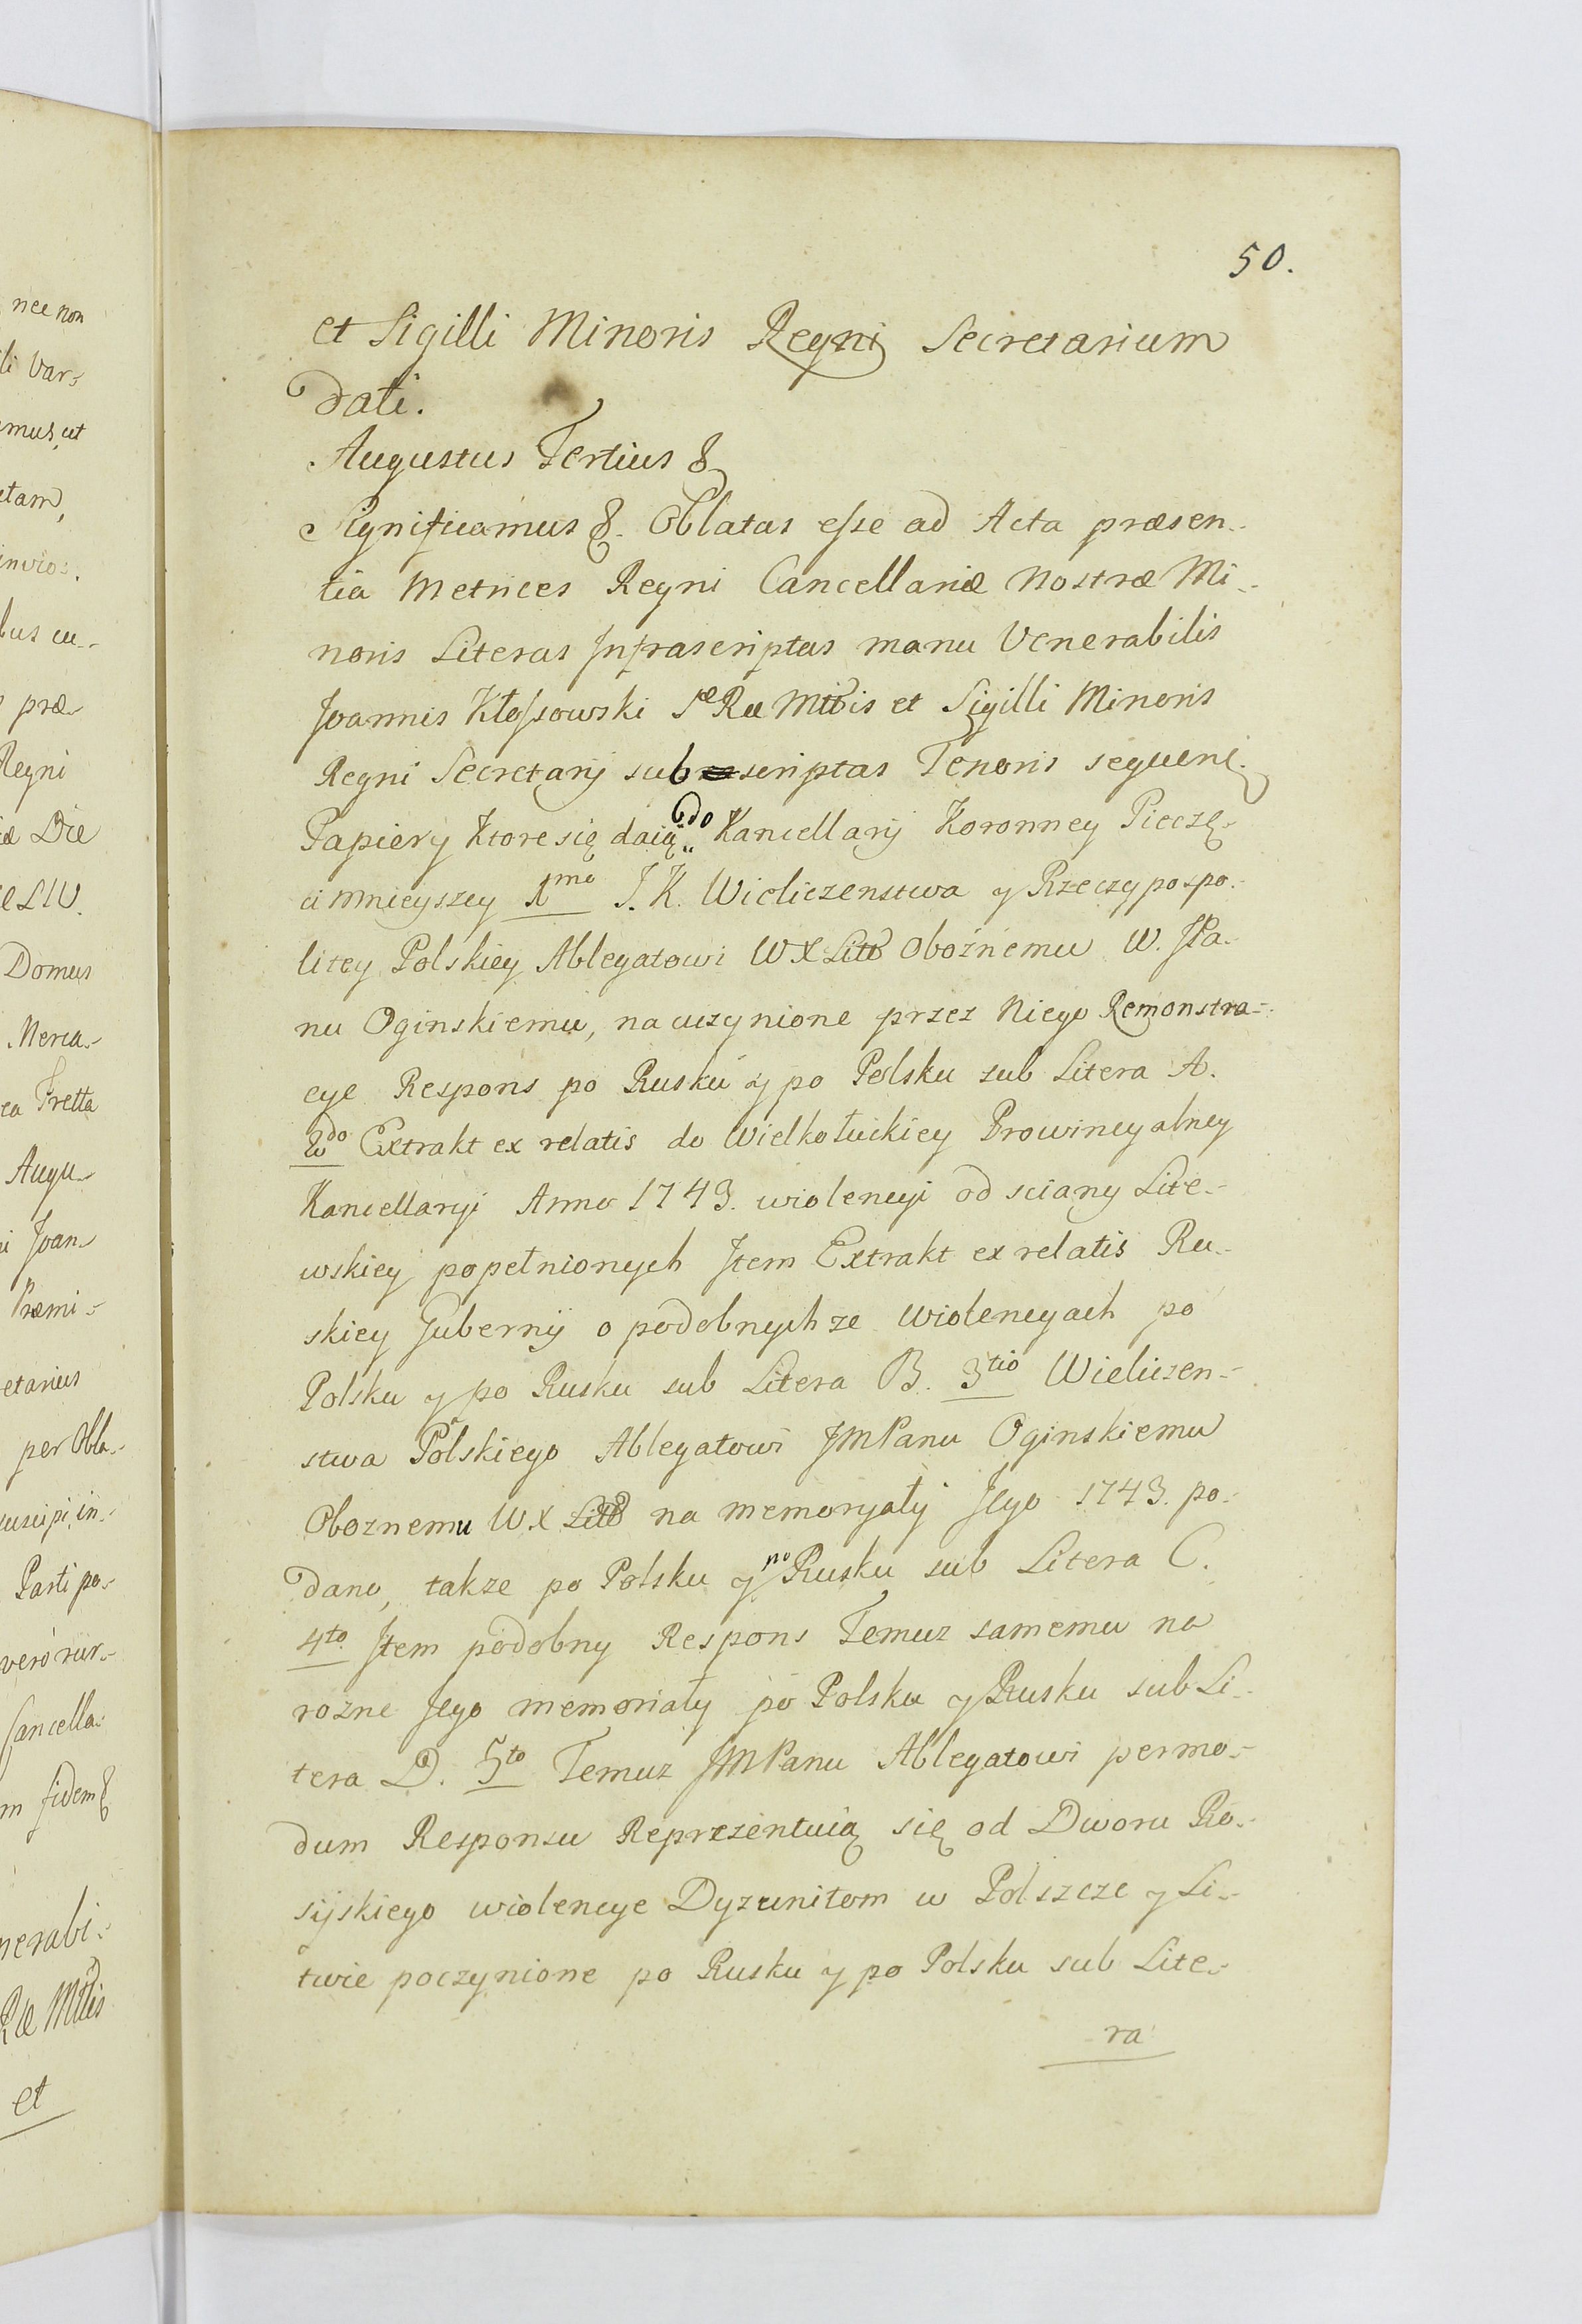 nec non
li Var-
emus, ut
etam,
invios.
bus cu-
præ-
Regni
Die
LIV.
Domus
Merca-
ca Fretta
Augu-
Joan-
Præmi-
etarius
per Obla-
suscipi, in-
Parti po-
vero rur-
Cancella-
m fidem &
nerabi-
Ræ Mttis
et
50.
et Sigilli Minoris Regni Secretarium
dati.
Augustus Tertius &
Significamus &. Oblatas esse ad Acta præsen-
tia Metrices Regni Cancellariæ Nostræ Mi-
noris Literas Infrascriptas manu Venerabilis
Joannis Kłossowski Sæ Ræ Mttis et Sigilli Minoris
Regni Secretarij subscriptas Tenoris sequenẽ.
Papiery Ktore się daią do Kancellarij Koronney Pieczę-
ci mnieyszey 1mo J. K. Wieliczenstwa y Rzeczypospo-
litey Polskiey Ablegatowi W X Litt Oboźnemu W. JPa-
nu Oginskiemu, na uczynione przez Niego Remonstra-
cye Respons po Rusku y po Polsku sub Litera A.
2do Extrakt ex relatis do Wielkołuckiey Prowincyalney
Kancellaryi Anno 1743. wiolencyi od sciany Lite-
wskiey popełnionych Item Extrakt ex relatis Ru-
skiey Gubernij o podobnychze wiolencyach po
Polsku y po Rusku sub Litera B. 3tio Wieliczen-
stwa Polskiego Ablegatowi JMPanu Oginskiemu
Oboznemu W X Litt na memoryały Jego 1743. po-
dane, takze po Polsku y po Rusku sub Litera C.
4to Item podobny Respons Temuz samemu na
rozne Jego memoriały po Polsku y Rusku sub Li-
tera D. 5to Temuz JMPanu Ablegatowi permo-
dum Responsu Reprezentuią się od Dworu Ro-
sijskiego wiolencye Dyzunitom w Polszcze y Li-
twie poczynione po Rusku y po Polsku sub Lite-
ra